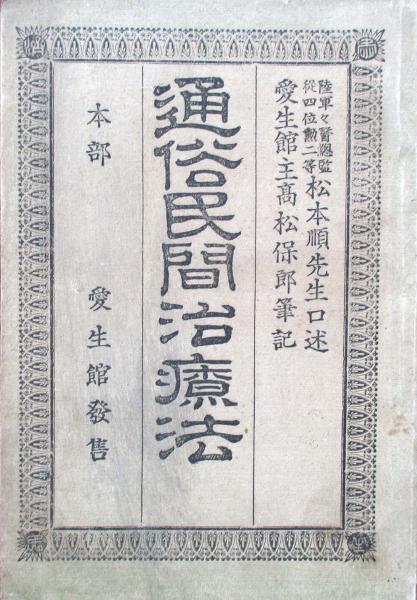 陸軍々醫總監
從四位勲二等
松本順先生口述
愛生館主髙松保郎筆記
通俗民間治療法
本部　愛生館發售